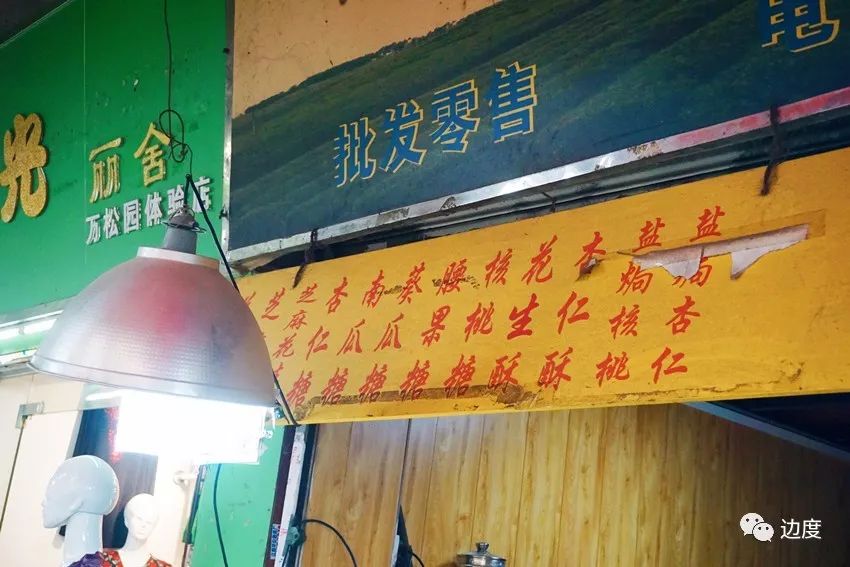 光
丽舍
万松园体验店
批发零售
电
盐焗杏仁
盐焗核桃
杏仁酥
花生酥
核桃糖
腰果糖
葵瓜糖
南瓜糖
杏仁糖
芝麻花
芝
边度